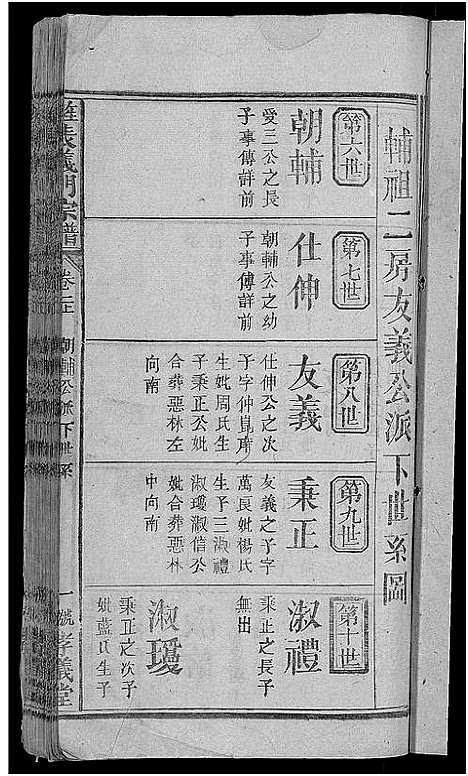 輔祖二房友義公派下世系圖
第六世
朝輔
愛三公之長
子事傳詳前
第七世
仕伸
朝輔公之幼
子事傳詳前
第八世
友義
仕伸公之次
子字仲
生妣周氏生
子秉正公妣
合葬惡林左
向南
第九世
秉正
友義之子字
萬良妣楊氏
生子三淑禮
淑瓊淑信公
妣合葬惡林
中向南
第十世
淑禮
秉正之長子
無出
淑瓊
秉正之次子
妣藍氏生子
義門宗譜
卷
朝輔公派下世系
一號
孝義堂